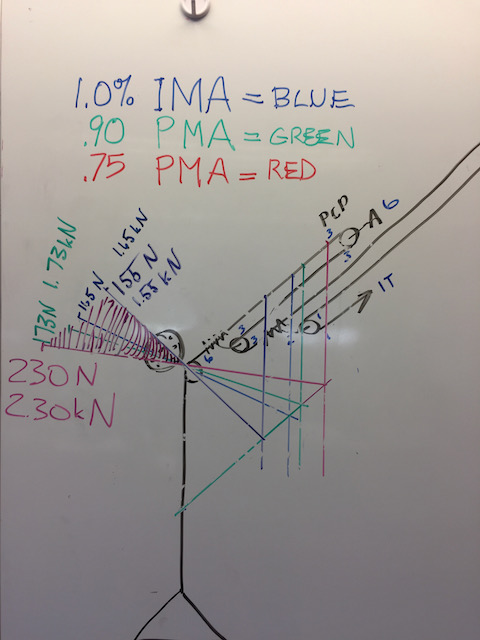 1.0% IMA = BLUE
.90 PMA = GREEN
.75 PMA = RED
PCD
3
A 6
.5
1T
1
1
3
3
6
1.65kN
155 N
1.55 kN
165 N
1.73kN
173N
230N
2.30kN